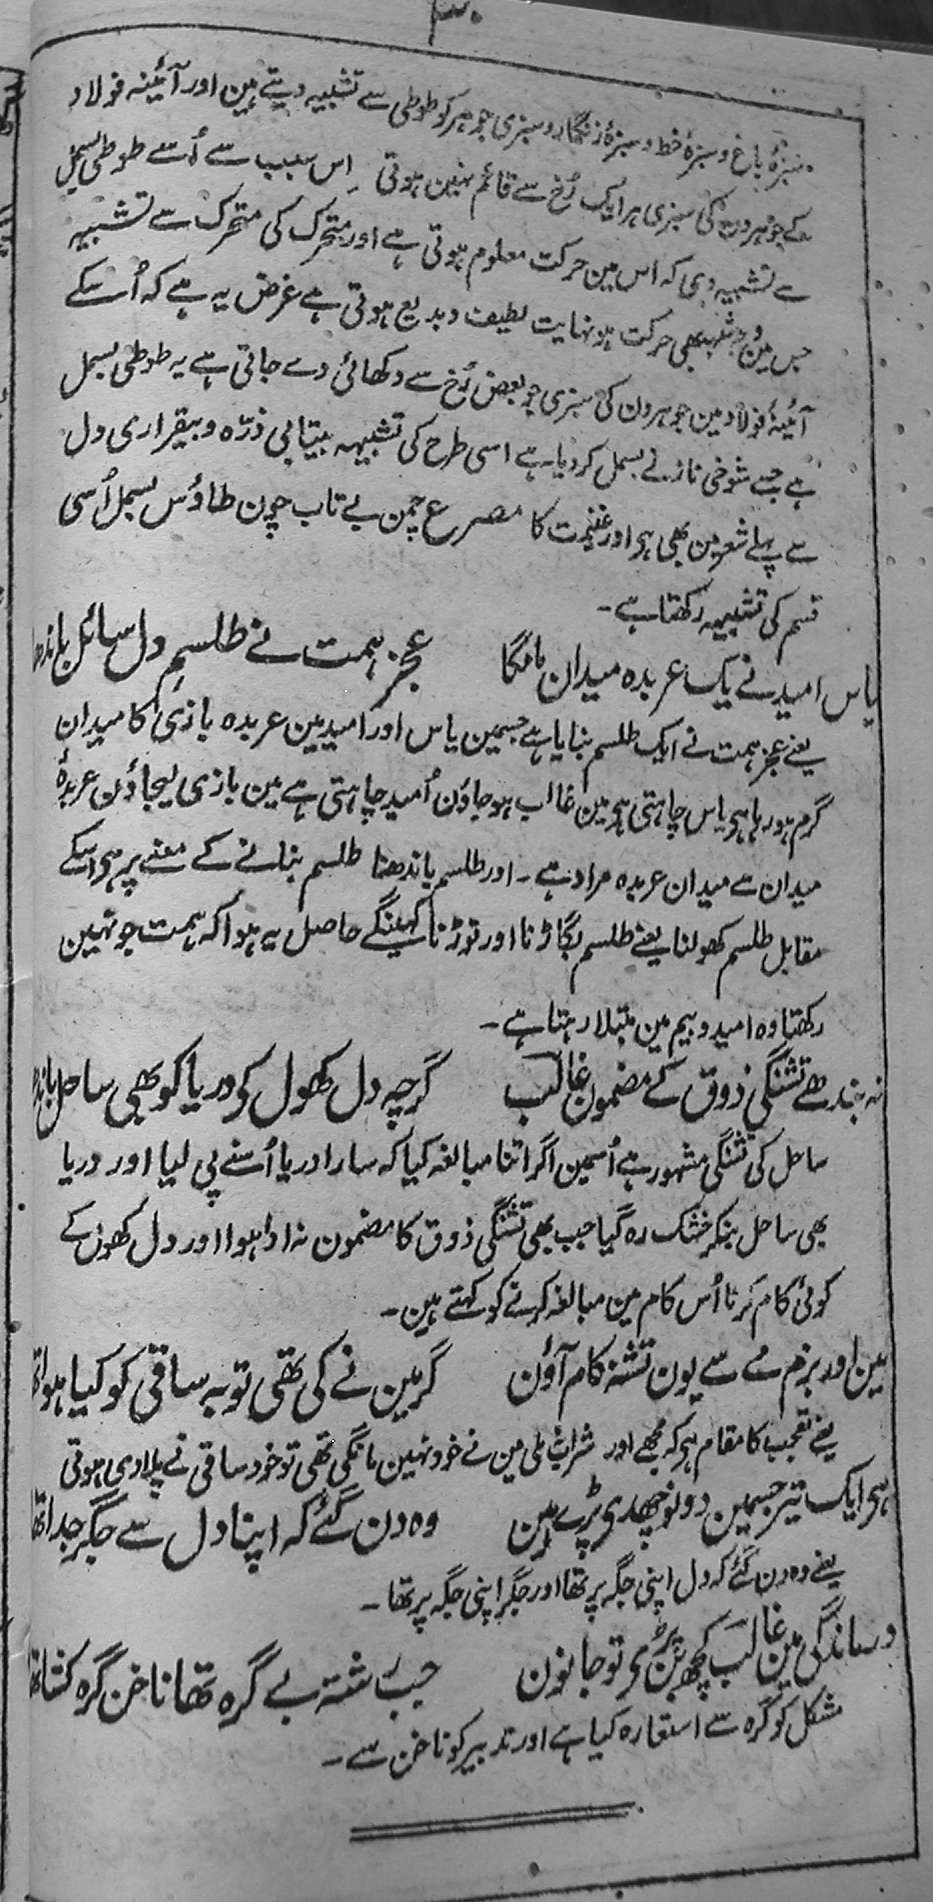 ۳۰
سبزۂ باغ و سبزۂ خط و سبزۂ زنگار و سبزی جوہر کو طوطی سے تشبیہ دیتے ہین اور آئینہ فولاد
کے جوہرون کی سبزی ہر ایک رُخ سے قائم نہین ہوتی اِس سبب سے اُسے طوطی بسمل
سے تشبیہ دی کہ اس مین حرکت معلوم ہوتی ہے اور متحرک کی متحرک سے تشبیہ
جس مین وجہ شبہ بھی حرکت ہو نہایت لطیف و بدیع ہوتی ہے غرض یہ ہے کہ اُسکے
آئینۂ فولاد مین جوہرون کی سبزی جو بعض رُخ سے دکھائی دے جاتی ہے یہ طوطی بسمل
ہے جسے شوخی ناز نے بسمل کر دیا ہے اسی طرح کی تشبیہہ بیتابی ذرّہ و بیقراری دل
سے پہلے شعر مین بھی ہو اور غنیمت کا مصرع چمن بے تاب چون طاؤس بسمل اُسی
قسم کی تشبیہہ رکھتا ہے۔
یاس امید نے یک عربدہ میدان مانگا عجز ہمت نے طلسمِ دل سائل باندھا
یعنے عجز ہمت نے ایک طلسم بنایا ہے جسمین یاس اور امید مین عربدہ بازی کا میدان
گرم ہو رہا ہو یاس چاہتی ہو مین غالب ہو جاؤن اُمید چاہتی ہے مین بازی لیجاؤن عربدۂ
میدان سے میدان عربدہ مراد ہے۔ اور طلسم باندھنا طلسم بنانے کے معنے پر ہو اسکے
مقابل طلسم کھولنا یعنے طلسم بگاڑنا اور توڑنا کہینگے حاصل یہ ہوا کہ ہمت جو نہین
رکھتا وہ امید و بیم مین مبتلا رہتا ہے۔
نہ بندھے تشنگی ذوق کے مضمون غالب گرچہ دل کھول کو دریا کو بھی ساحل باندھا
ساحل کی تشنگی مشہور ہے اُسمین اگر اتنا مبالغہ کیا کہ سارا دریا اُسنے پی لیا اور دریا
بھی ساحل بنکر خشک رہ گیا جب بھی تشنگی ذوق کا مضمون نہ ادا ہوا اور دل کھول کے
کوئی کام کرنا اُس کام مین مبالغہ کرنے کو کہتے ہین۔
مین اور بزم مے سے یون تشنہ کام آؤن گر مین نے کی تھی توبہ ساقی کو کیا ہوا تھا
یعنے تعجب کا مقام ہو کہ مجھے اور شراب نہ ملی مین نے خود نہین مانگی تھی تو خود ساقی نے پلا دی ہوتی
ہو ایک تیر جسمین دونو چھدی پڑے ہین وہ دن گئے کہ اپنا دل سے جگر جدا تھا
یعنے وہ دن گئے کہ دل اپنی جگہ پر تھا اور جگر اپنی جگہ پر تھا۔
درماندگی مین غالب کچھ بن پڑی تو جانون جب رشتہ بے گرہ تھا ناخن گرہ کشا تھا
مشکل کو گرہ سے استعارہ کیا ہے اور تدبیر کو ناخن سے۔